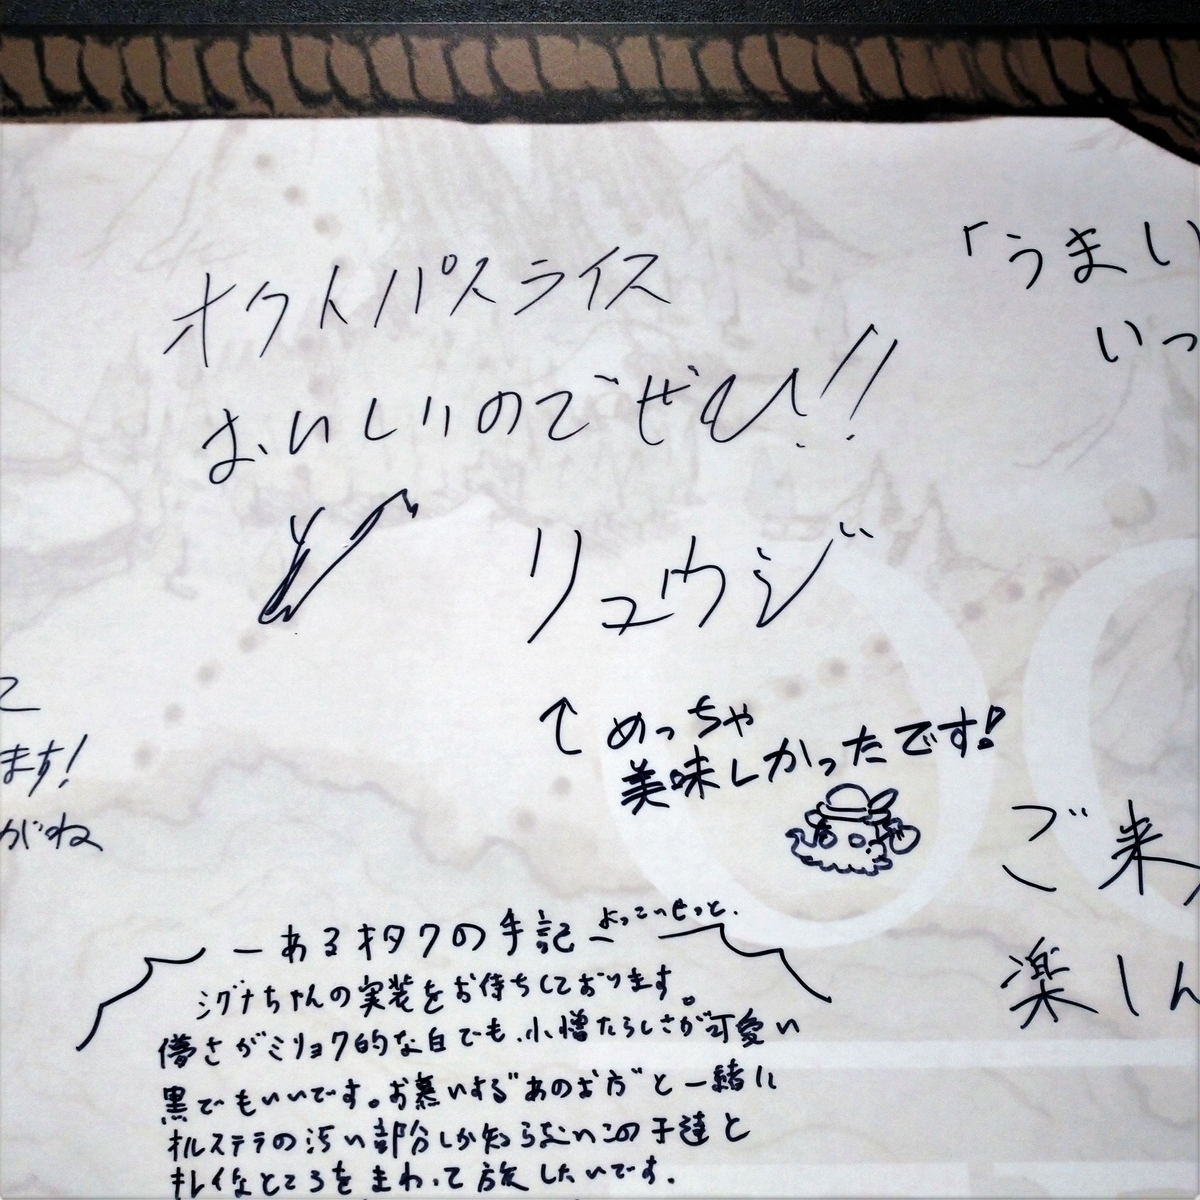 オクトパスライス
おいしいのでぜひ!!
リュウジ
「うまい
いっ
て
ます!
がね
↑めっちゃ
美味しかったです!
ご来
楽しん
ーあるオタクの手記ー よっていせっと.
シグナちゃんの実装をお待ちしております。
儚さがミリョク的な白でも、小憎たらしさが可愛い
黒でもいいです。お慕いする"あのお方"と一緒に
オルステラの汚い部分しか知らないこの子達と
キレイなところをまわって旅したいです。